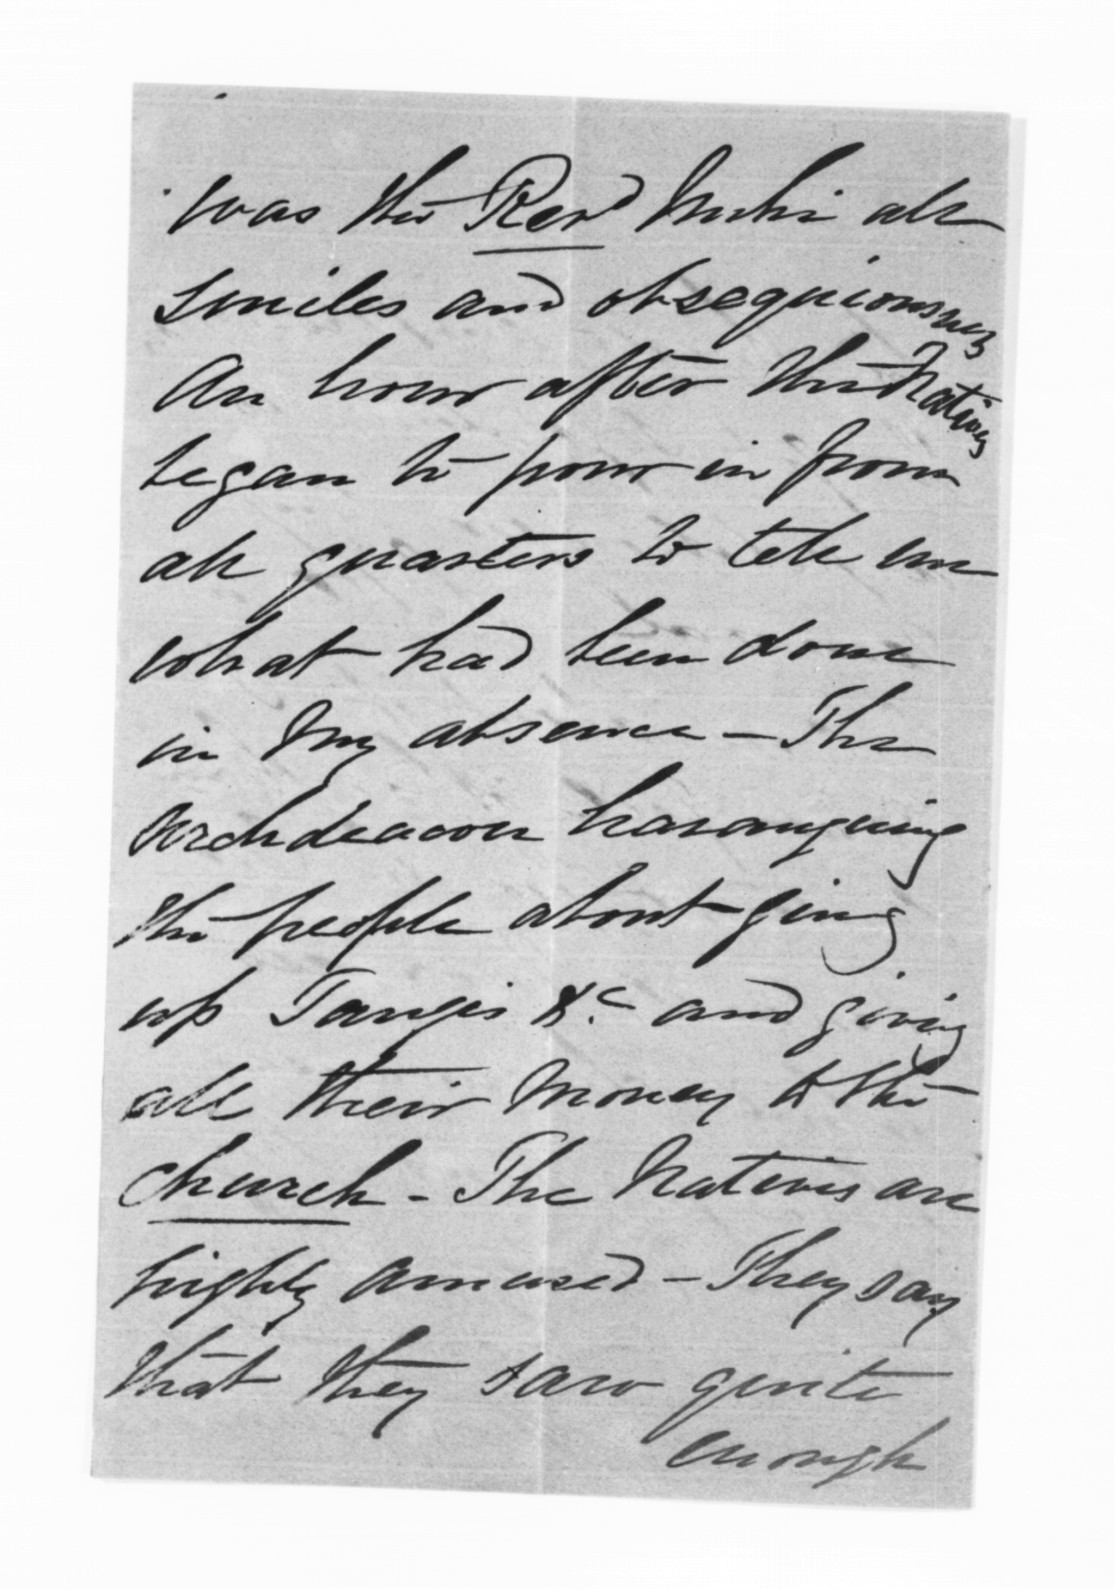 was the Revd Mihi all
smiles and obsequiousness
An hour after the Natives
began to pour in from
all quarters to tell me
what had been done
in my absence - The
Archdeacon haranguing
the people about giving
up Tangis &c and giving
all their money to the
church - The Natives are
highly amused - They say
that they saw quite
enough